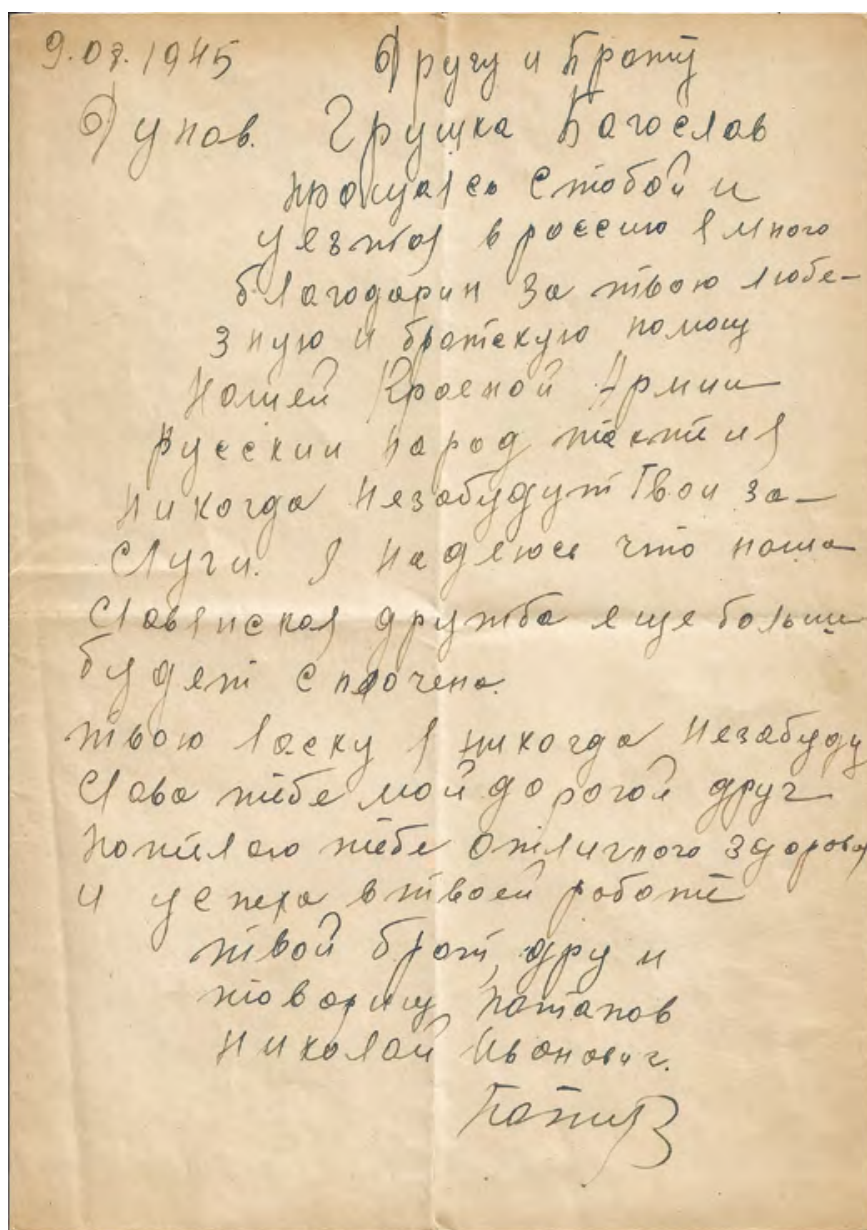 9.07.1945 Другу и брату
Дунов. Грушка Багослав
прощаясь стобой и
уезжая в россию я много
благодарин за твою любе-
зную и братскую помощ
Нашей Красной Армии
русскии народ также и я
никогда незабудут Твои за-
слуги. Я надеюсь что наша
Славянская дружба еще больши
будет сплочена.
твою ласку я никогда незабуду
Слава тебе мой дорогой друг
пожелаю тебе отличного здоровя
и успеха втвоей работе
твой брат, дру и
товарищ Потапов
Николай Иванович.